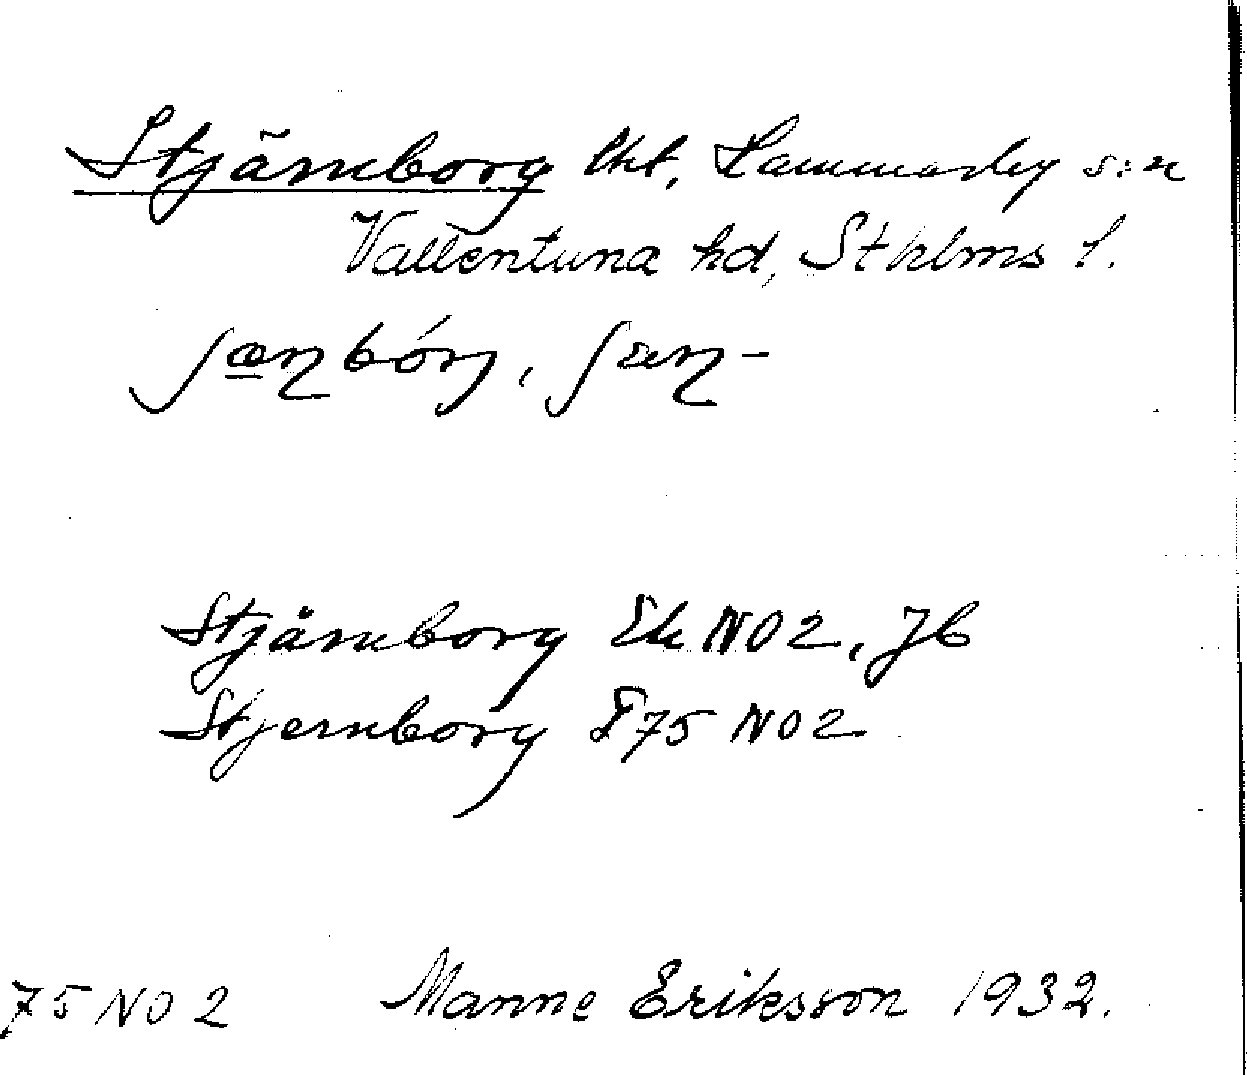 Stjärnborg lht, Hammarby s:n
Vallentuna hd, Sthlms l.
Stjärnborg Ek NO2, Jb
Stjernborg T75 NO2
75 NO 2 Manne Eriksson 1932.